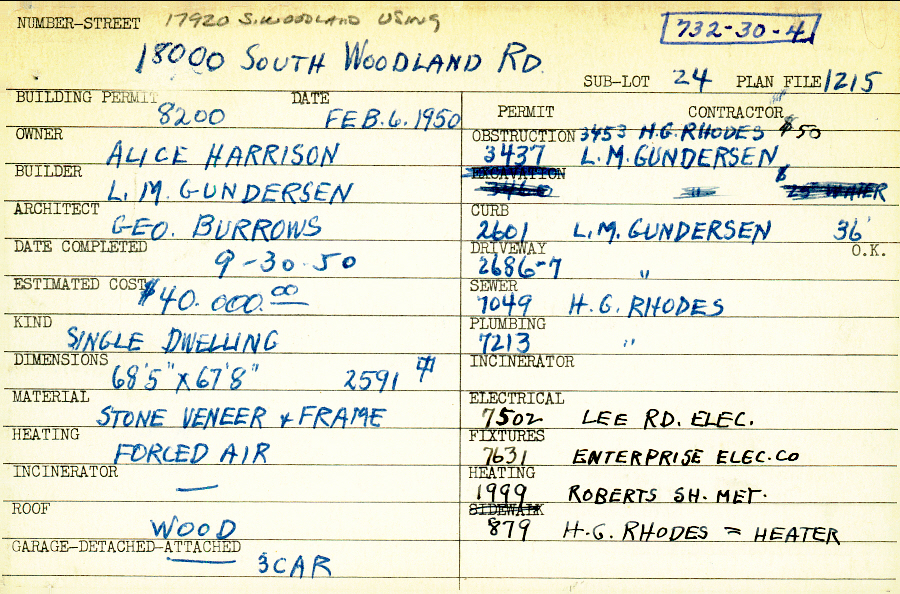 NUMBER-STREET 17920 S. WOODLAND USING
732-30-4
18000 SOUTH WOODLAND RD.
SUB-LOT 24 PLAN FILE 1215
BUILDING PERMIT 8200 DATE FEB. 6. 1950
OWNER ALICE HARRISON
BUILDER L. M. GUNDERSEN
ARCHITECT GEO. BURROWS
DATE COMPLETED 9-30-50
ESTIMATED COST $40.000.00
KIND SINGLE DWELLING
DIMENSIONS 68'5" X 67'8" 2591
MATERIAL STONE VENEER & FRAME
HEATING FORCED AIR
INCINERATOR —
ROOF WOOD
GARAGE-DETACHED-ATTACHED 3 CAR
PERMIT CONTRACTOR
OBSTRUCTION 3453 H.G. RHODES $50
3437 L.M. GUNDERSEN
EXCAVATION
3460 " $25 WATER
CURB
2601 L.M. GUNDERSEN 36'
DRIVEWAY O.K.
2686-7 "
SEWER
7049 H.G. RHODES
PLUMBING
7213 "
INCINERATOR
ELECTRICAL
7502 LEE RD. ELEC.
FIXTURES
7631 ENTERPRISE ELEC. CO
HEATING
1999 ROBERTS SH. MET.
SIDEWALK
879 H.G. RHODES = HEATER